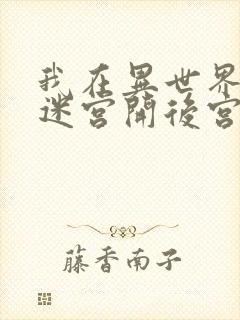 我在異世界
迷宮開後宮
藤香南子